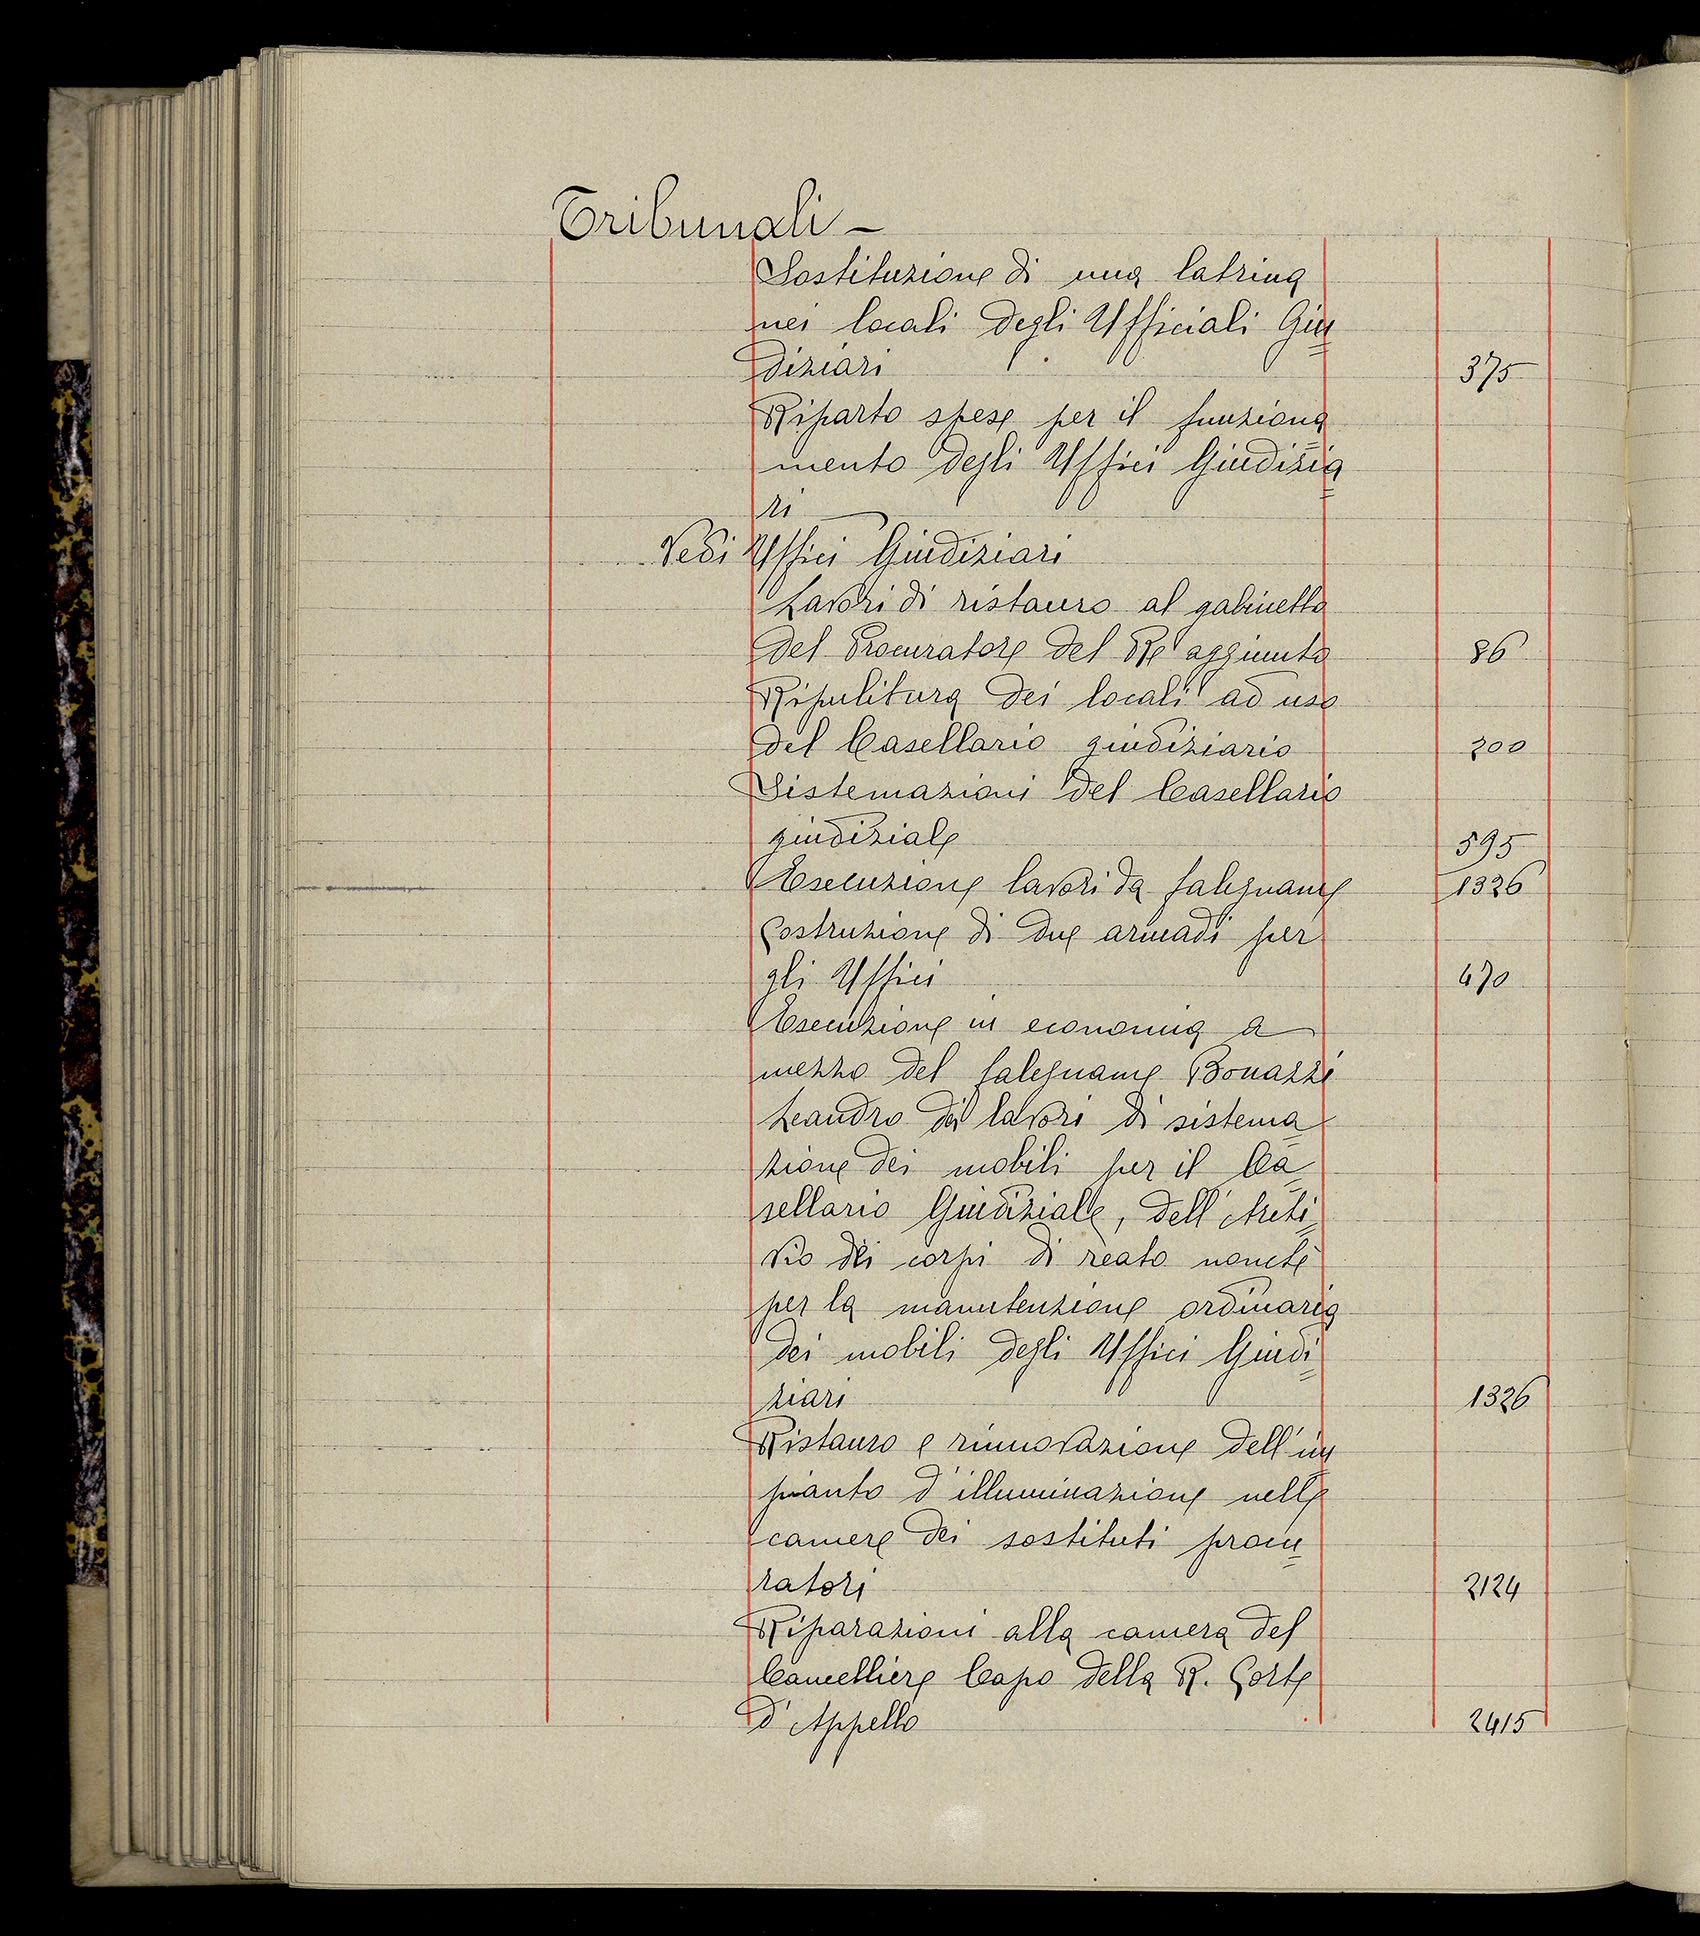 Tribunali –
Sostituzione di una latrina
nei locali degli Ufficiali Giu=
diziari 375
Riparto spese per il funziona=
mento degli Uffici Giudizia=
ri
Vedi Uffici Giudiziari
Lavori di ristauro al gabinetto
del Procuratore del Re aggiunto 86
Ripulitura dei locali ad uso
del Casellario giudiziario 200
Sistemazioni del Casellario
giudiziale 595
Esecuzione lavori da falegname 1326
Costruzione di due armadi per
gli Uffici 470
Esecuzione in economia a
mezzo del falegname Bonazzi
Leandro dei lavori di sistema=
zione dei mobili per il Ca=
sellario Giudiziale, dell'Archi=
vio dei corpi di reato nonchè
per la manutenzione ordinaria
dei mobili degli Uffici Giudi=
ziari 1326
Ristauro e rinnovazione dell'im=
pianto d'illuminazione nelle
camere dei sostituti procu=
ratori 2124
Riparazioni alla camera del
Cancelliere Capo della R. Corte
d'Appello 2415